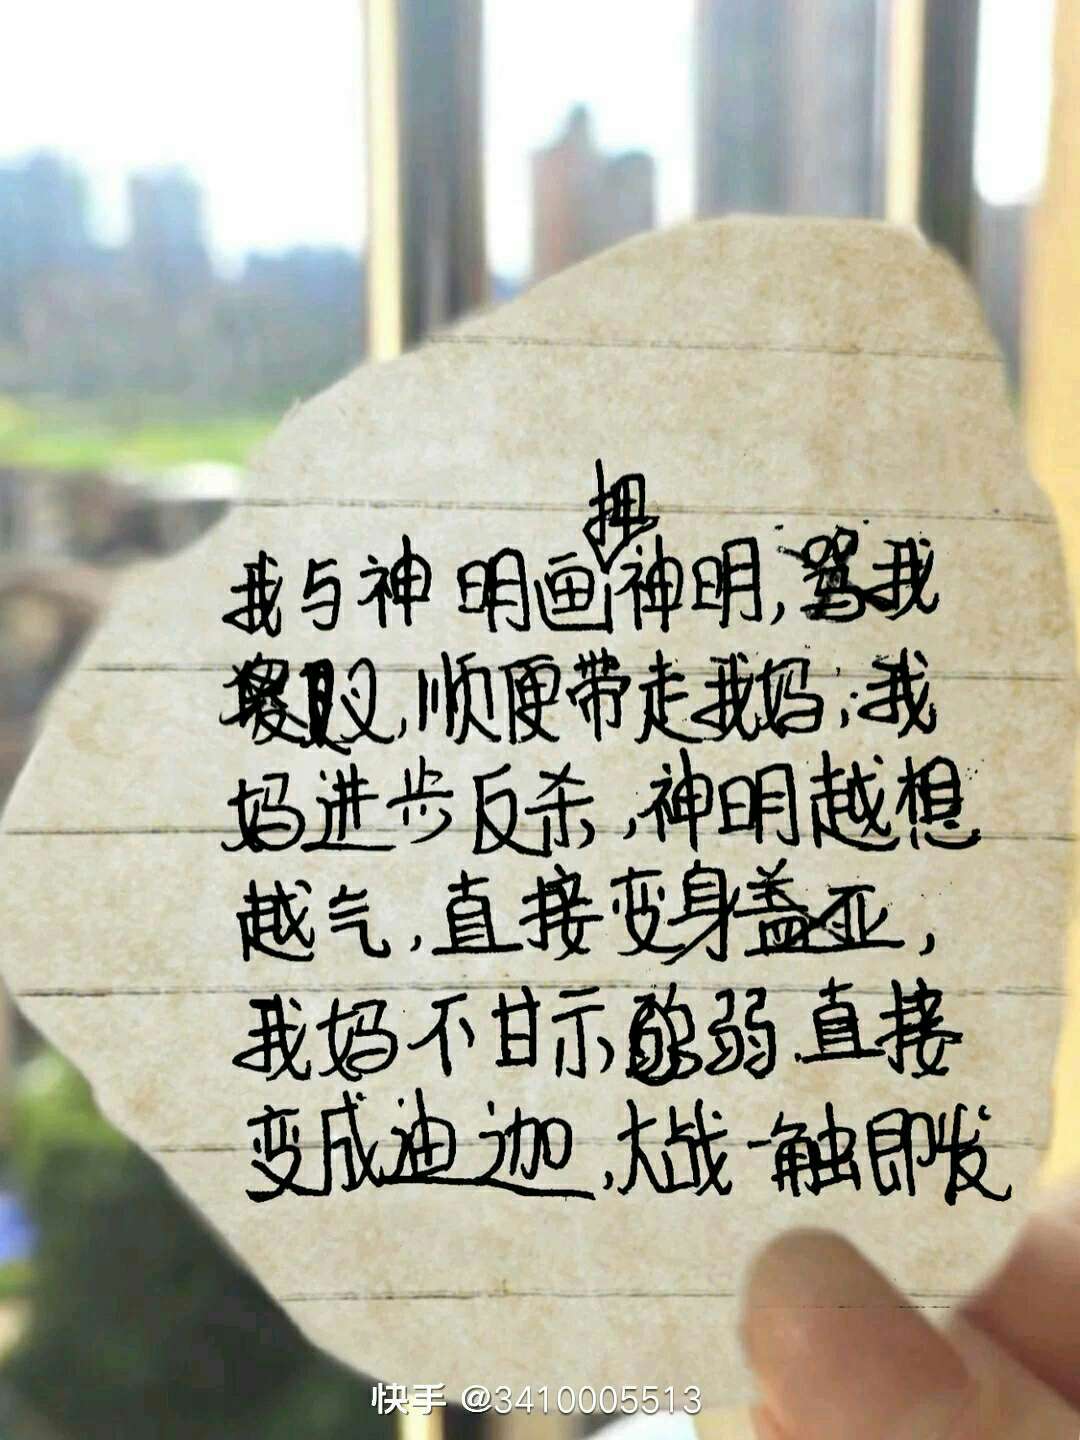 押
我与神明画神明,骂我
顺便带走我妈,我
妈进步反杀,神明越想
越气,直接变身盖亚,
我妈不甘示弱直接
变成迪迦,大战一触即发
快手 @3410005513